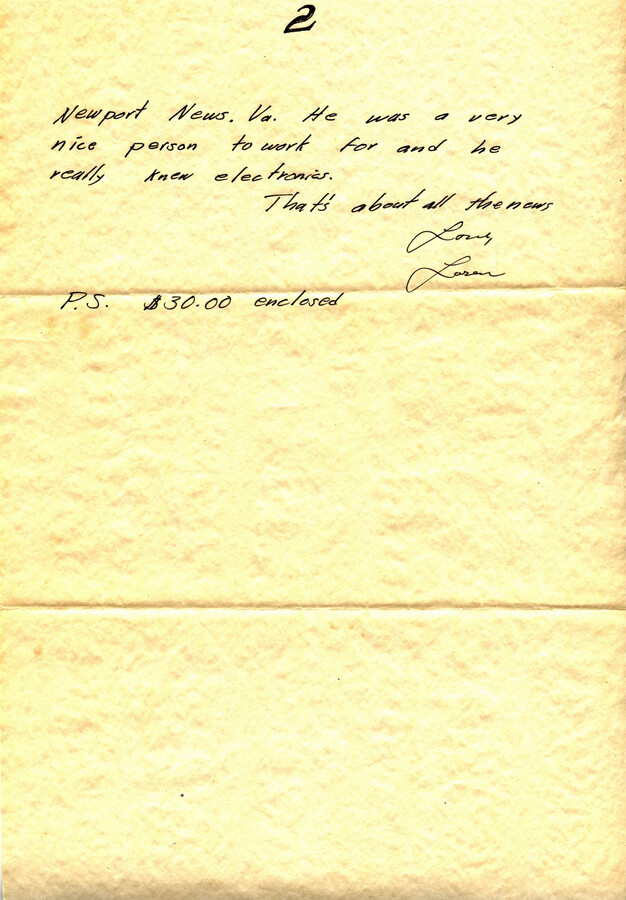 2
Newport News, Va. He was a very
nice person to work for and he
really knew electronics.
That's about all the news
Love,
Loren
P.S. $30.00 enclosed